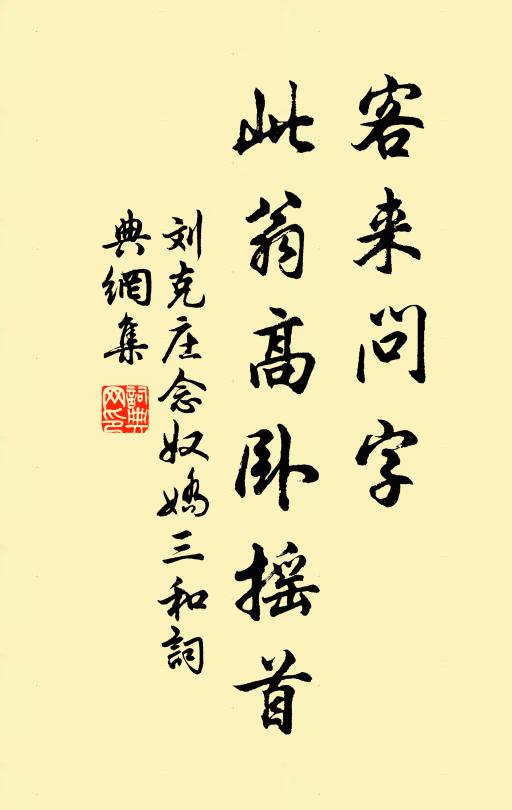 客来问字
此翁高卧摇首
刘克庄念奴娇三和词
典網集
詞典网印